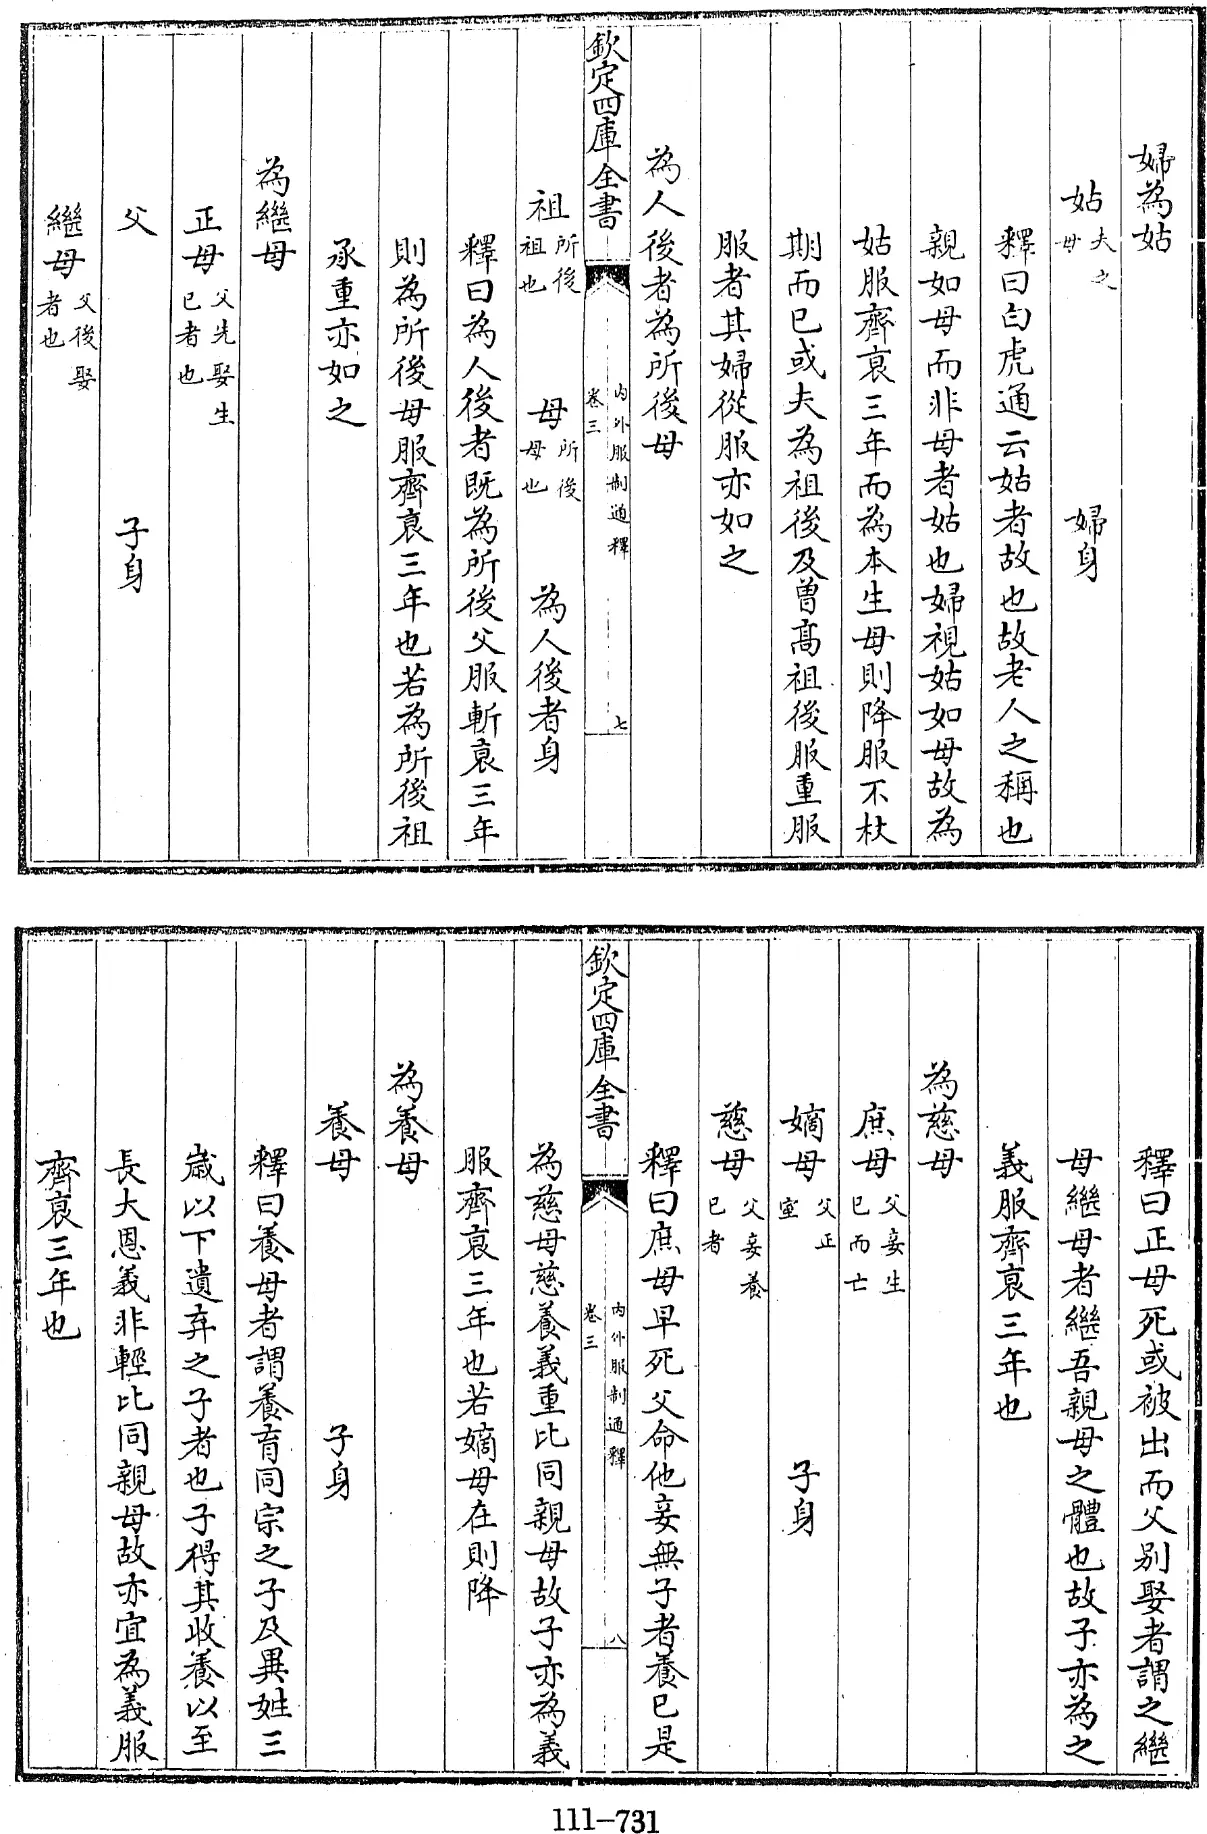 婦為姑
姑夫之母 婦身
釋曰白虎通云姑者故也故老人之稱也
親如母而非母者姑也婦視姑如母故為
姑服齊衰三年而為本生母則降服不杖
期而已或夫為祖後及曾高祖後服重服
服者其婦從服亦如之
為人後者為所後母
欽定四庫全書
內外服制通釋
卷三
七
祖所後祖也 母所後母也 為人後者身
釋曰為人後者既為所後父服斬衰三年
則為所後母服齊衰三年也若為所後祖
承重亦如之
為繼母
正母父先娶生已者也
父 子身
繼母父後娶者也
釋曰正母死或被出而父别娶者謂之繼
母繼母者繼吾親母之體也故子亦為之
義服齊衰三年也
為慈母
庶母父妾生已而亡
嫡母父正室 子身
慈母父妾養已者
釋曰庶母早死父命他妾無子者養已是
欽定四庫全書
內外服制通釋
卷三
八
為慈母慈養義重比同親母故子亦為義
服齊衰三年也若嫡母在則降
為養母
養母 子身
釋曰養母者謂養育同宗之子及異姓三
歲以下遺弃之子者也子得其收養以至
長大恩義非輕比同親母故亦宜為義服
齊衰三年也
111-731